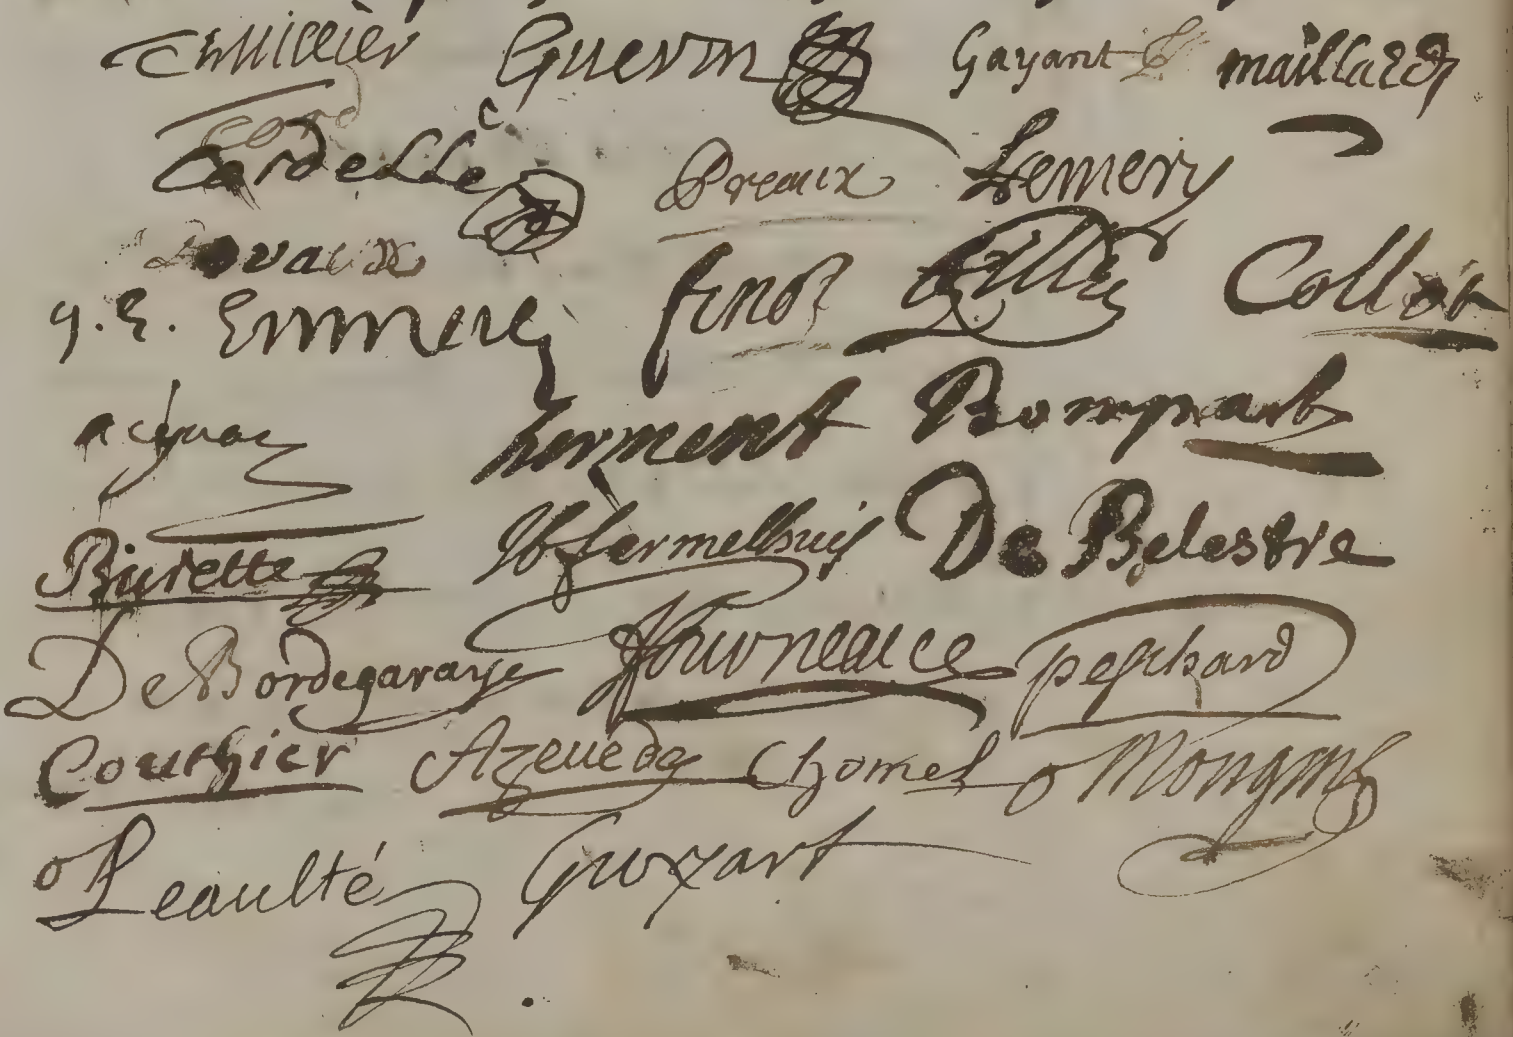 Cuvillier Guerin Gayant maillard
Cord
Cardelle c Preaux Lemery
Devaux
g. E. Emmerez finot Gelly Collot
herment Bompart
Burette Hermelhuis De Belestre
De Bordegaraye Fourneau pepshard
Couthier Azevedo Chomel Mongin
Leaulté Guozart